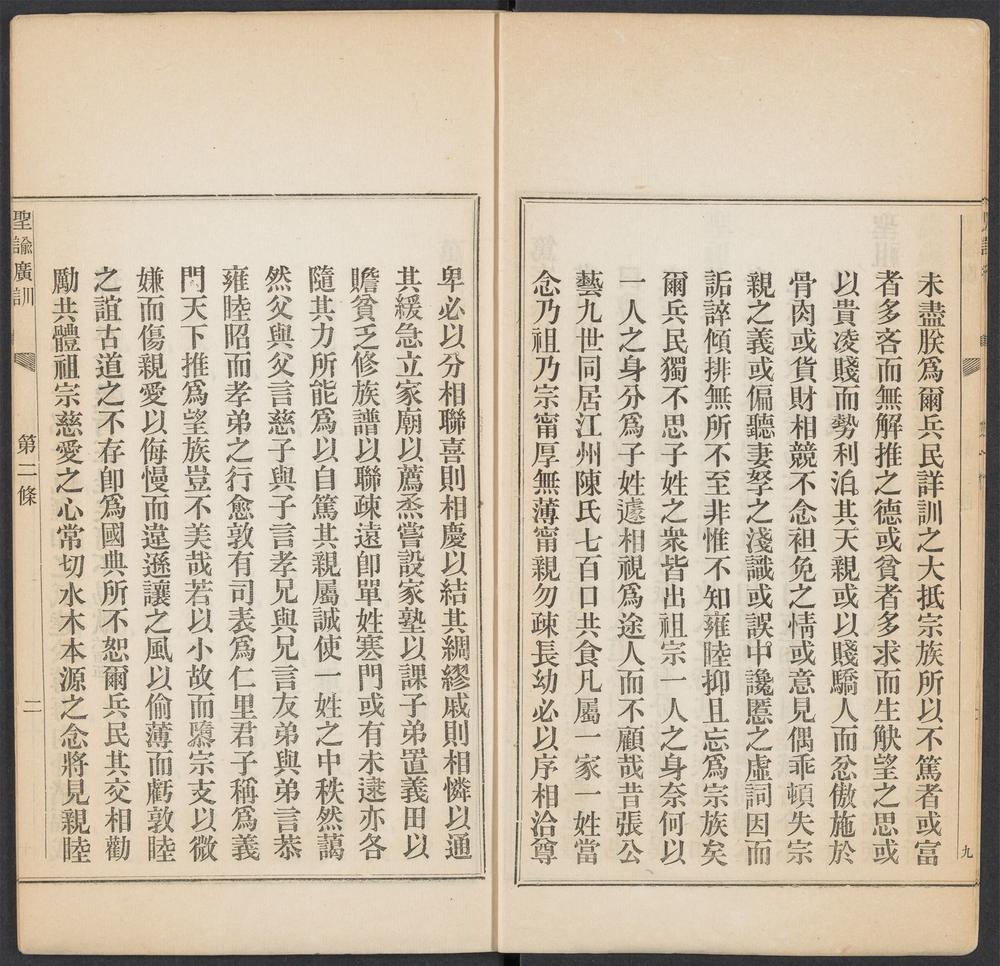 未盡朕爲爾兵民詳訓之大抵宗族所以不篤者或富
者多吝而無解推之德或貧者多求而生觖望之思或
以貴凌賤而勢利汨其天親或以賤驕人而忿傲施於
骨肉或貨財相競不念袒免之情或意見偶乖頓失宗
親之義或偏聽妻孥之淺識或誤中讒慝之虛詞因而
詬誶傾排無所不至非惟不知雍睦抑且忘爲宗族矣
爾兵民獨不思子姓之衆皆出祖宗一人之身奈何以
一人之身分爲子姓遽相視爲途人而不顧哉昔張公
藝九世同居江州陳氏七百口共食凡屬一家一姓當
念乃祖乃宗甯厚無薄甯親勿疎長幼必以序相洽尊
九
卑必以分相聯喜則相慶以結其綢繆戚則相憐以通
其緩急立家廟以薦烝嘗設家塾以課子弟置義田以
贍貧乏修族譜以聯疎遠卽單姓寒門或有未逮亦各
隨其力所能爲以自篤其親屬誠使一姓之中秩然藹
然父與父言慈子與子言孝兄與兄言友弟與弟言恭
雍睦昭而孝弟之行愈敦有司表爲仁里君子稱爲義
門天下推爲望族豈不美哉若以小故而隳宗支以微
嫌而傷親愛以侮慢而違遜讓之風以偷薄而虧敦睦
之誼古道之不存卽爲國典所不恕爾兵民其交相勸
勵共體祖宗慈愛之心常切水木本源之念將見親睦
聖諭廣訓 第二條 二